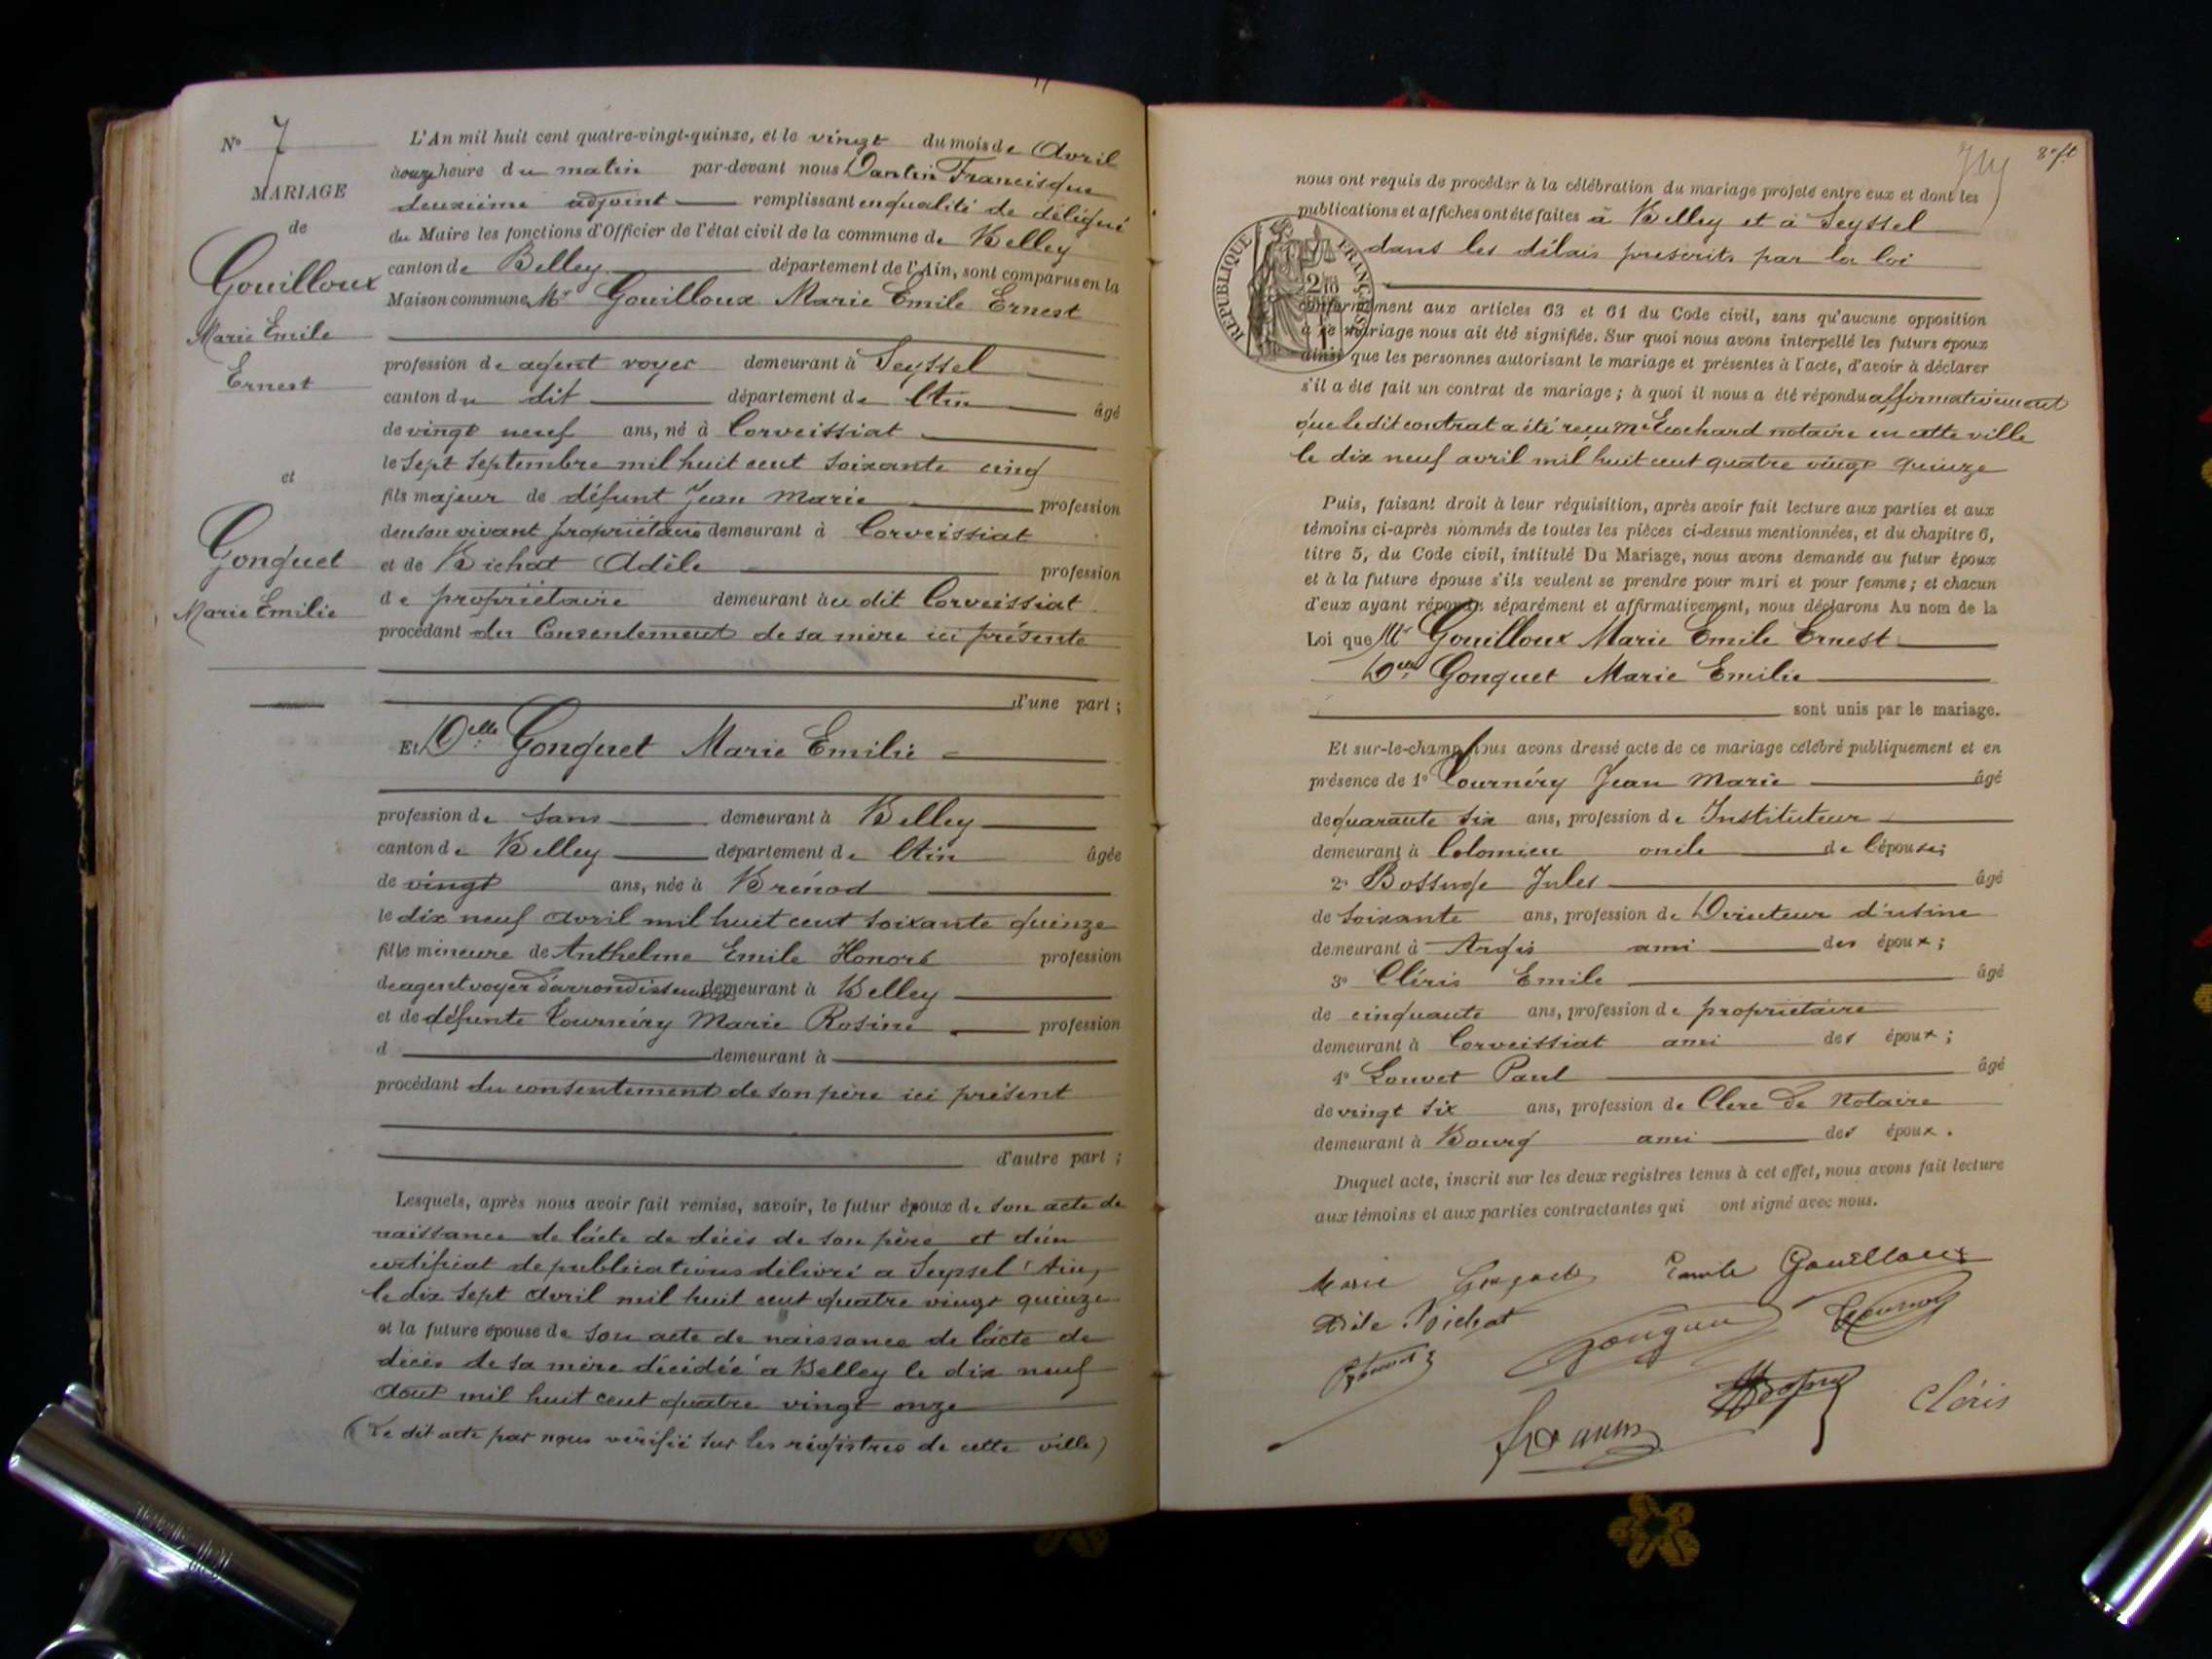 N° 7
MARIAGE
de
Gouilloux
Marie Emile
Ernest
et
Gonguet
Marie Emilie
L'An mil huit cent quatre-vingt-quinze, et le vingt du mois de Avril
à onze heure du matin par-devant nous Dantin Francisque
deuxième adjoint remplissant en qualité de délégué
du Maire les fonctions d'Officier de l'état civil de la commune de Belley
canton de Belley département de l'Ain, sont comparus en la
Maison commune Mr Gouilloux Marie Emile Ernest
profession de agent voyer demeurant à Seyssel
canton du dit département de l'Ain âgé
de vingt neuf ans, né à Corveissiat
le sept Septembre mil huit cent soixante cinq
fils majeur de défunt Jean Marie profession
de en son vivant propriétaire demeurant à Corveissiat
et de Bichat Adèle profession
de propriétaire demeurant au dit Corveissiat
procédant du Consentement de sa mère ici présente
d'une part ;
Et Delle Gonguet Marie Emilie
profession de sans demeurant à Belley
canton de Belley département de l'Ain âgée
de vingt ans, née à Brénod
le dix neuf avril mil huit cent soixante quinze
fille mineure de Anthelme Emile Honoré profession
de agent voyer d'arrondissement demeurant à Belley
et de défunte Tournéry Marie Rosine profession
d demeurant à
procédant du consentement de son père ici présent
d'autre part ;
Lesquels, après nous avoir fait remise, savoir, le futur époux de son acte de
naissance de l'acte de décès de son père et d'un
certificat de publications délivré a Seyssel (Ain)
le dix sept avril mil huit cent quatre vingt quinze
et la future épouse de son acte de naissance de l'acte de
décès de sa mère décédée a Belley le dix neuf
août mil huit cent quatre vingt onze
(Le dit acte par nous vérifié sur les régistres de cette ville)
8e ft
nous ont requis de procéder à la célébration du mariage projeté entre eux et dont les
publications et affiches ont été faites à Belley et à Seyssel
dans les délais prescrits par la loi
RÉPUBLIQUE FRANÇAISE
conformément aux articles 63 et 64 du Code civil, sans qu'aucune opposition
à ce mariage nous ait été signifiée. Sur quoi nous avons interpellé les futurs époux
ainsi que les personnes autorisant le mariage et présentes à l'acte, d'avoir à déclarer
s'il a été fait un contrat de mariage ; à quoi il nous a été répondu affirmativement
que le dit contrat a été reçu Me notaire en cette ville
le dix neuf avril mil huit cent quatre vingt quinze
Puis, faisant droit à leur réquisition, après avoir fait lecture aux parties et aux
témoins ci-après nommés de toutes les pièces ci-dessus mentionnées, et du chapitre 6,
titre 5, du Code civil, intitulé Du Mariage, nous avons demandé au futur époux
et à la future épouse s'ils veulent se prendre pour mari et pour femme ; et chacun
d'eux ayant répondu séparément et affirmativement, nous déclarons Au nom de la
Loi que Mr Gouilloux Marie Emile Ernest
Delle Gonguet Marie Emilie
sont unis par le mariage.
Et sur-le-champ nous avons dressé acte de ce mariage célébré publiquement et en
présence de 1° Tournéry Jean Marie âgé
de quarante six ans, profession de Instituteur
demeurant à Colomieu oncle de l'épouse;
2° Bossuge Jules âgé
de soixante ans, profession de Directeur d'usine
demeurant à Argis ami des époux ;
3° Cléris Emile âgé
de cinquante ans, profession de propriétaire
demeurant à Corveissiat ami des époux ;
4° Louvet Paul âgé
de vingt six ans, profession de Clerc de Notaire
demeurant à Bourg ami des époux.
Duquel acte, inscrit sur les deux registres tenus à cet effet, nous avons fait lecture
aux témoins et aux parties contractantes qui ont signé avec nous.
Marie Gonguet Emile Gouilloux
Adèle Bichat Gonguet
Cléris